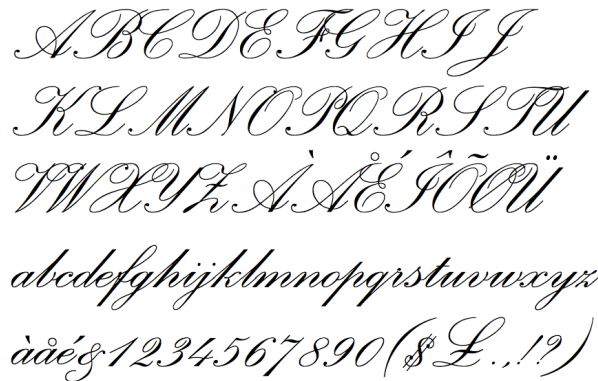 ABCDEFGHIJ
KLMNOPQRSTU
VWXYZÀÅÉÎÕØÜ
abcdefghijklmnopqrstuvwxyz
àåé&1234567890($£.,!?)